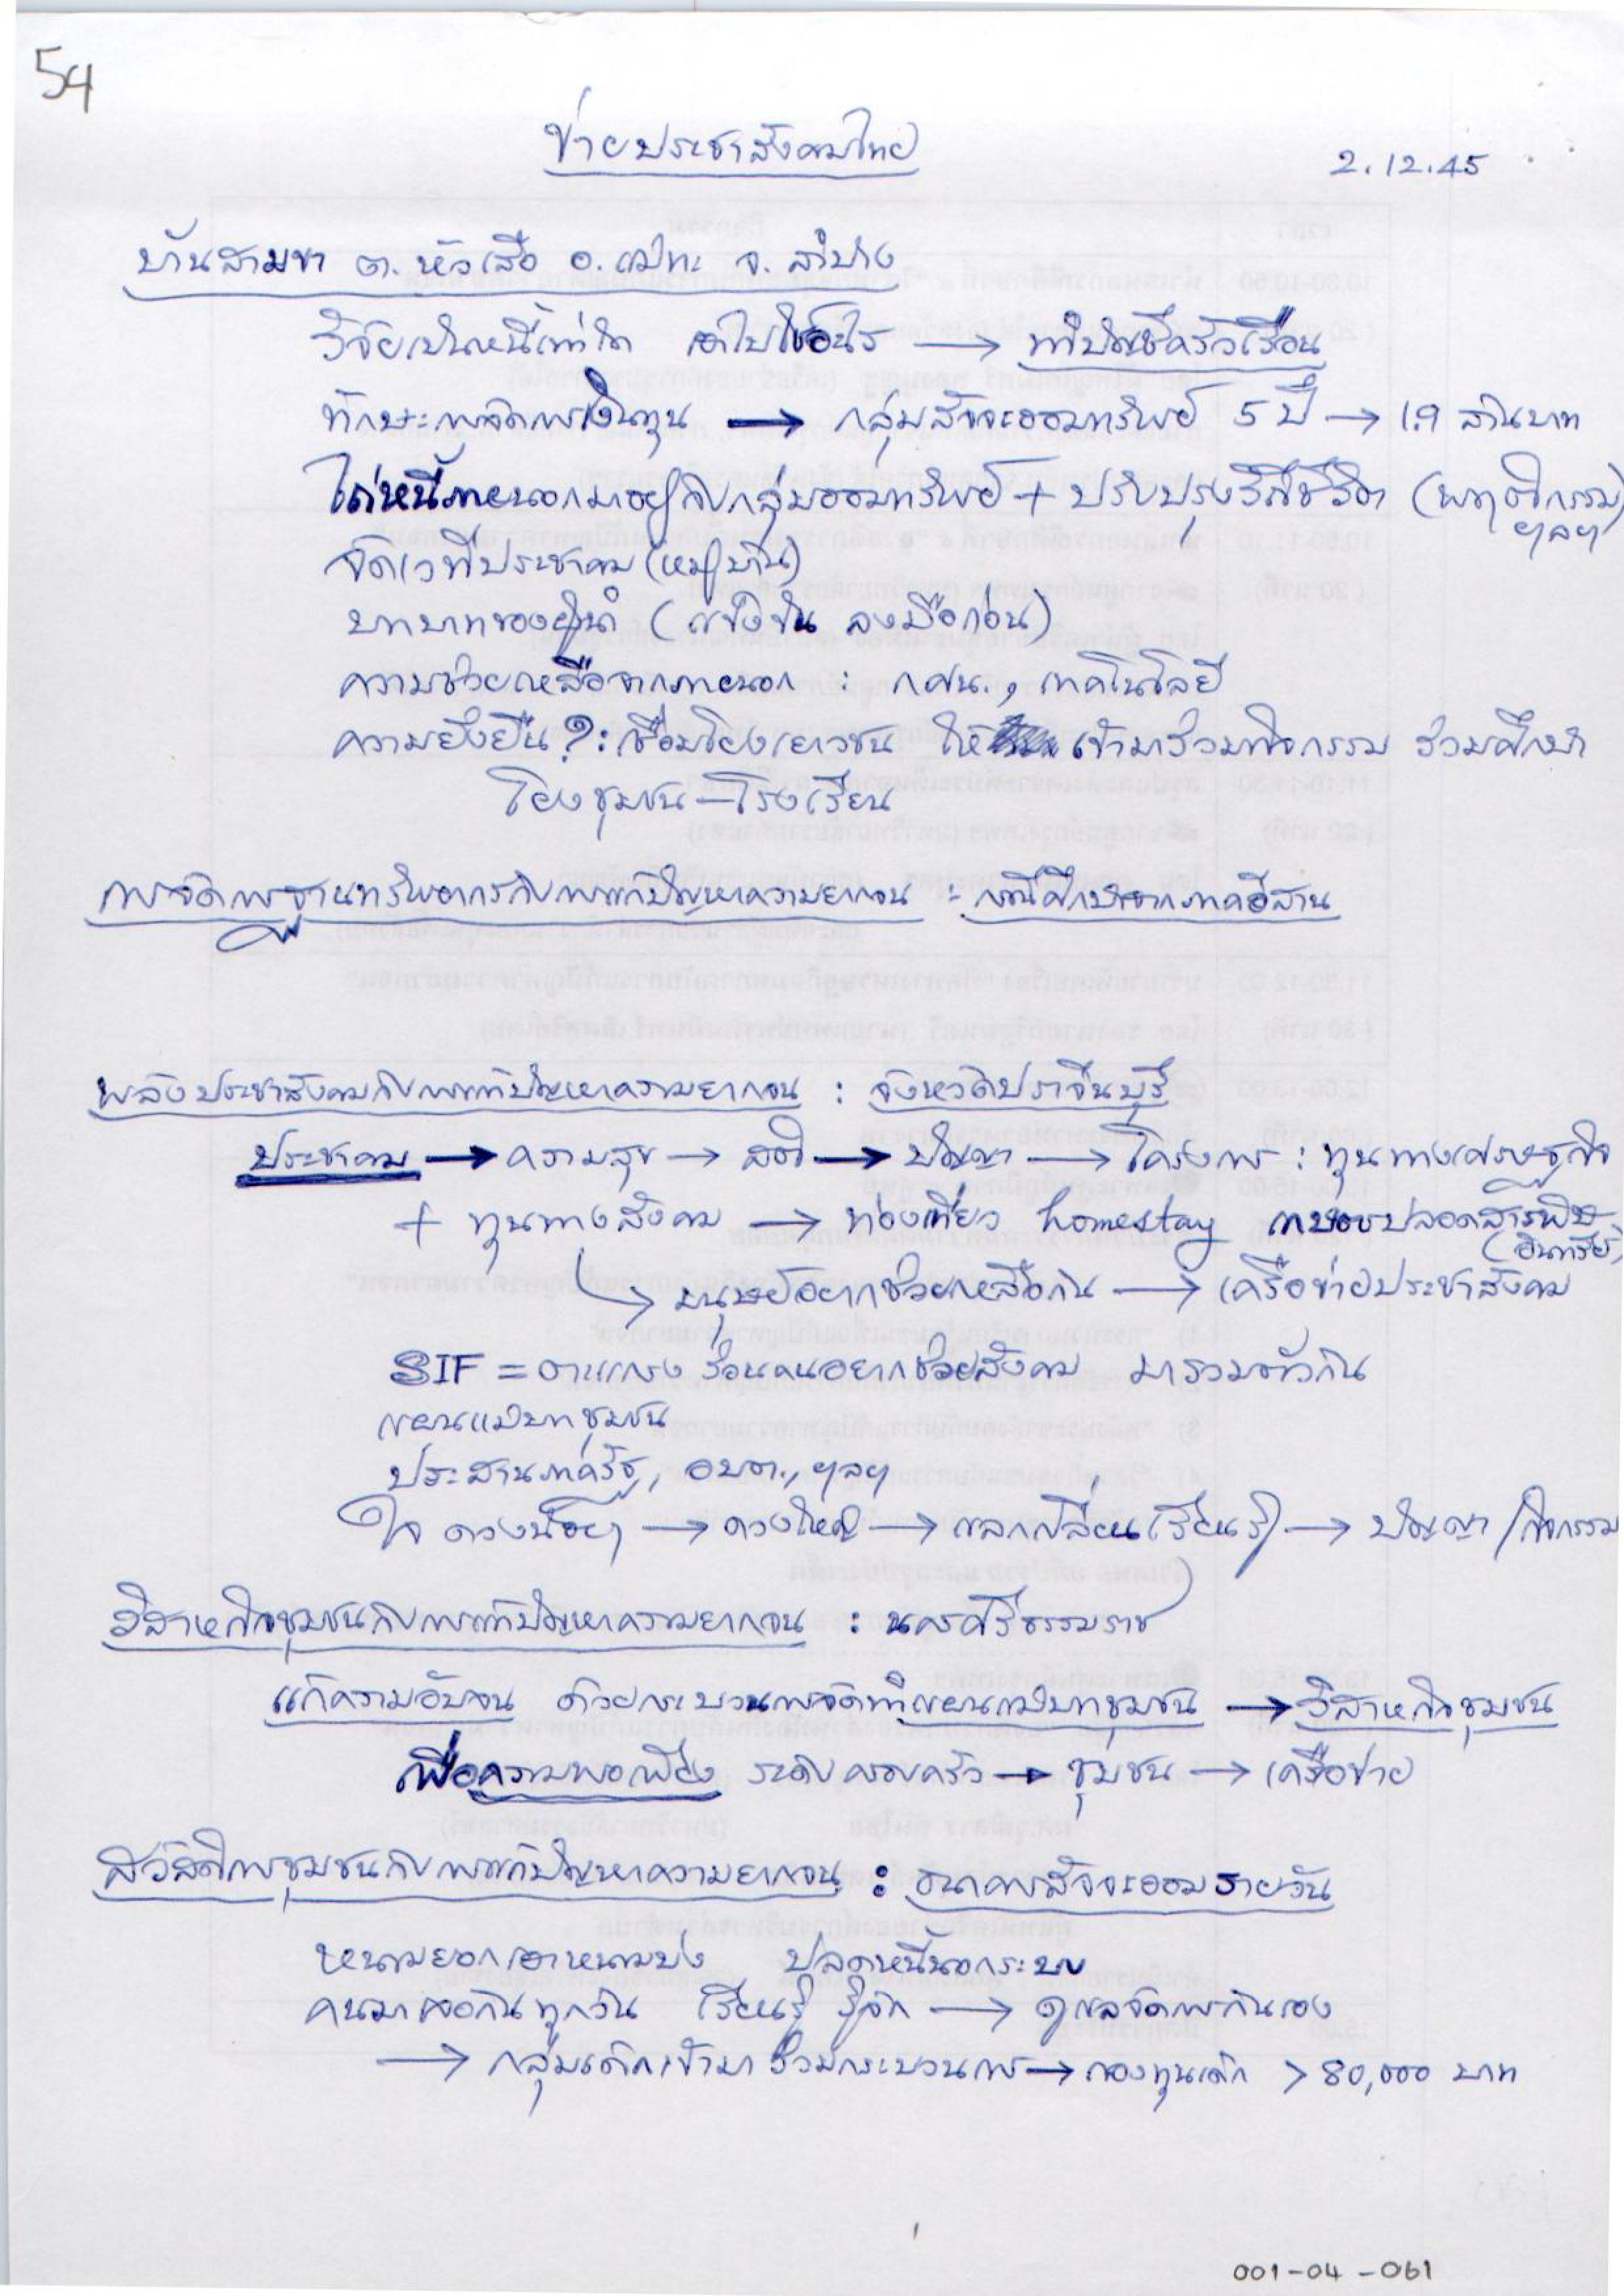 54
ข่ายประชาสังคมไทย
2.12.45
บ้านสามขา ต.หัวเสือ อ.แม่ทะ จ.ลำปาง
วิจัยเป็นหนี้เท่าใด เอาไปใช้อะไร → ทำบัญชีครัวเรือน
ทักษะการจัดการเงินทุน → กลุ่มสัจจะออมทรัพย์ 5 ปี → 1.9 ล้านบาท
ไถ่หนี้ภายนอกมาอยู่กับกลุ่มออมทรัพย์ + ปรับปรุงวิถีชีวิต (พฤติกรรม)
ฯลฯ
จัดเวทีประชาคม (หมู่บ้าน)
บทบาทของผู้นำ (แข็งขัน ลงมือก่อน)
ความช่วยเหลือจากภายนอก : กศน., เทคโนโลยี
ความยั่งยืน ? : เชื่อมโยงเยาวชน ให้ เข้ามาร่วมกิจกรรม ร่วมศึกษา
โยงชุมชน – โรงเรียน
การจัดการฐานทรัพยากรกับการแก้ปัญหาความยากจน : กรณีศึกษาจากภาคอีสาน
พลังประชาสังคมกับการแก้ปัญหาความยากจน : จังหวัดปราจีนบุรี
ประชาคม → ความสุข → สติ → ปัญญา → โครงการ : ทุนทางเศรษฐกิจ
+ ทุนทางสังคม → ท่องเที่ยว homestay เกษตรปลอดสารพิษ
(อินทรีย์)
↳ มนุษย์อยากช่วยเหลือกัน → เครือข่ายประชาสังคม
SIF = ตะแกรง ร่อนคนอยากช่วยสังคม มารวมตัวกัน
แผนแม่บทชุมชน
ประสานภาครัฐ, อบต., ฯลฯ
ใจ ดวงน้อยๆ → ดวงใหญ่ → แลกเปลี่ยนเรียนรู้ → ปัญญา / กิจกรรม
วิสาหกิจชุมชนกับการแก้ปัญหาความยากจน : นครศรีธรรมราช
แก้ความอับจน ด้วยกระบวนการจัดทำแผนแม่บทชุมชน → วิสาหกิจชุมชน
เพื่อความพอเพียง ระดับครอบครัว → ชุมชน → เครือข่าย
สวัสดิการชุมชนกับการแก้ปัญหาความยากจน : ธนาคารสัจจะออมรายวัน
หนามยอกเอาหนามบ่ง ปลดหนี้นอกระบบ
คนมาเจอกันทุกวัน เรียนรู้ รู้จัก → ดูแลจัดการกันเอง
→ กลุ่มเด็กเข้ามาร่วมกระบวนการ → กองทุนเด็ก > 80,000 บาท
001-04-061